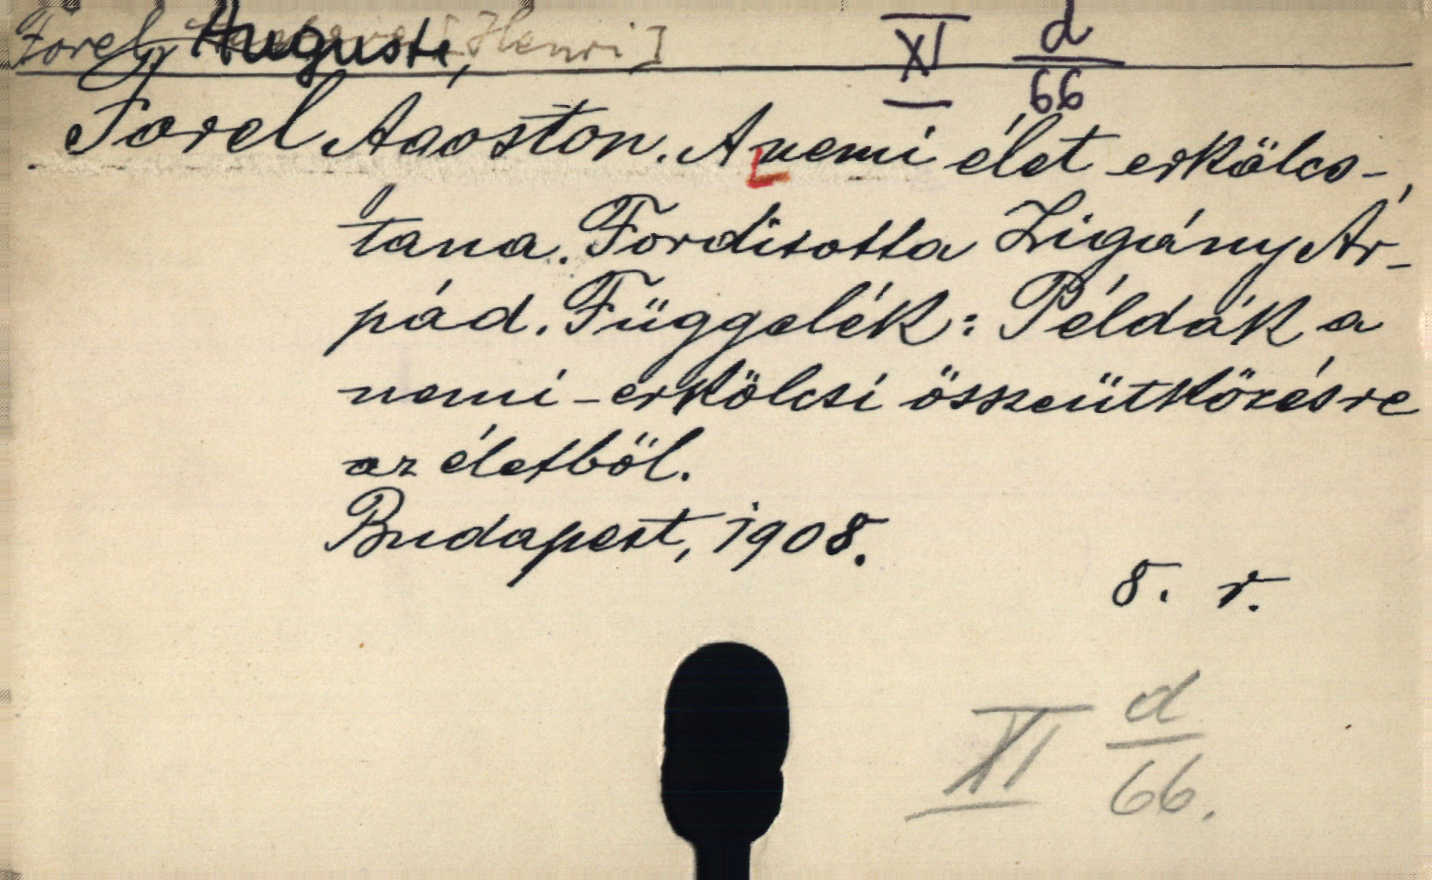 Forel, Auguste, [Henri] XI d/66
Forel Ágoston. A nemi élet erkölcs-
tana. Forditotta Zigány Ár-
pád. Függelék: Példák a
nemi-erkölcsi összeütközésre
az életből.
Budapest, 1908.
8. r.
XI d/66.